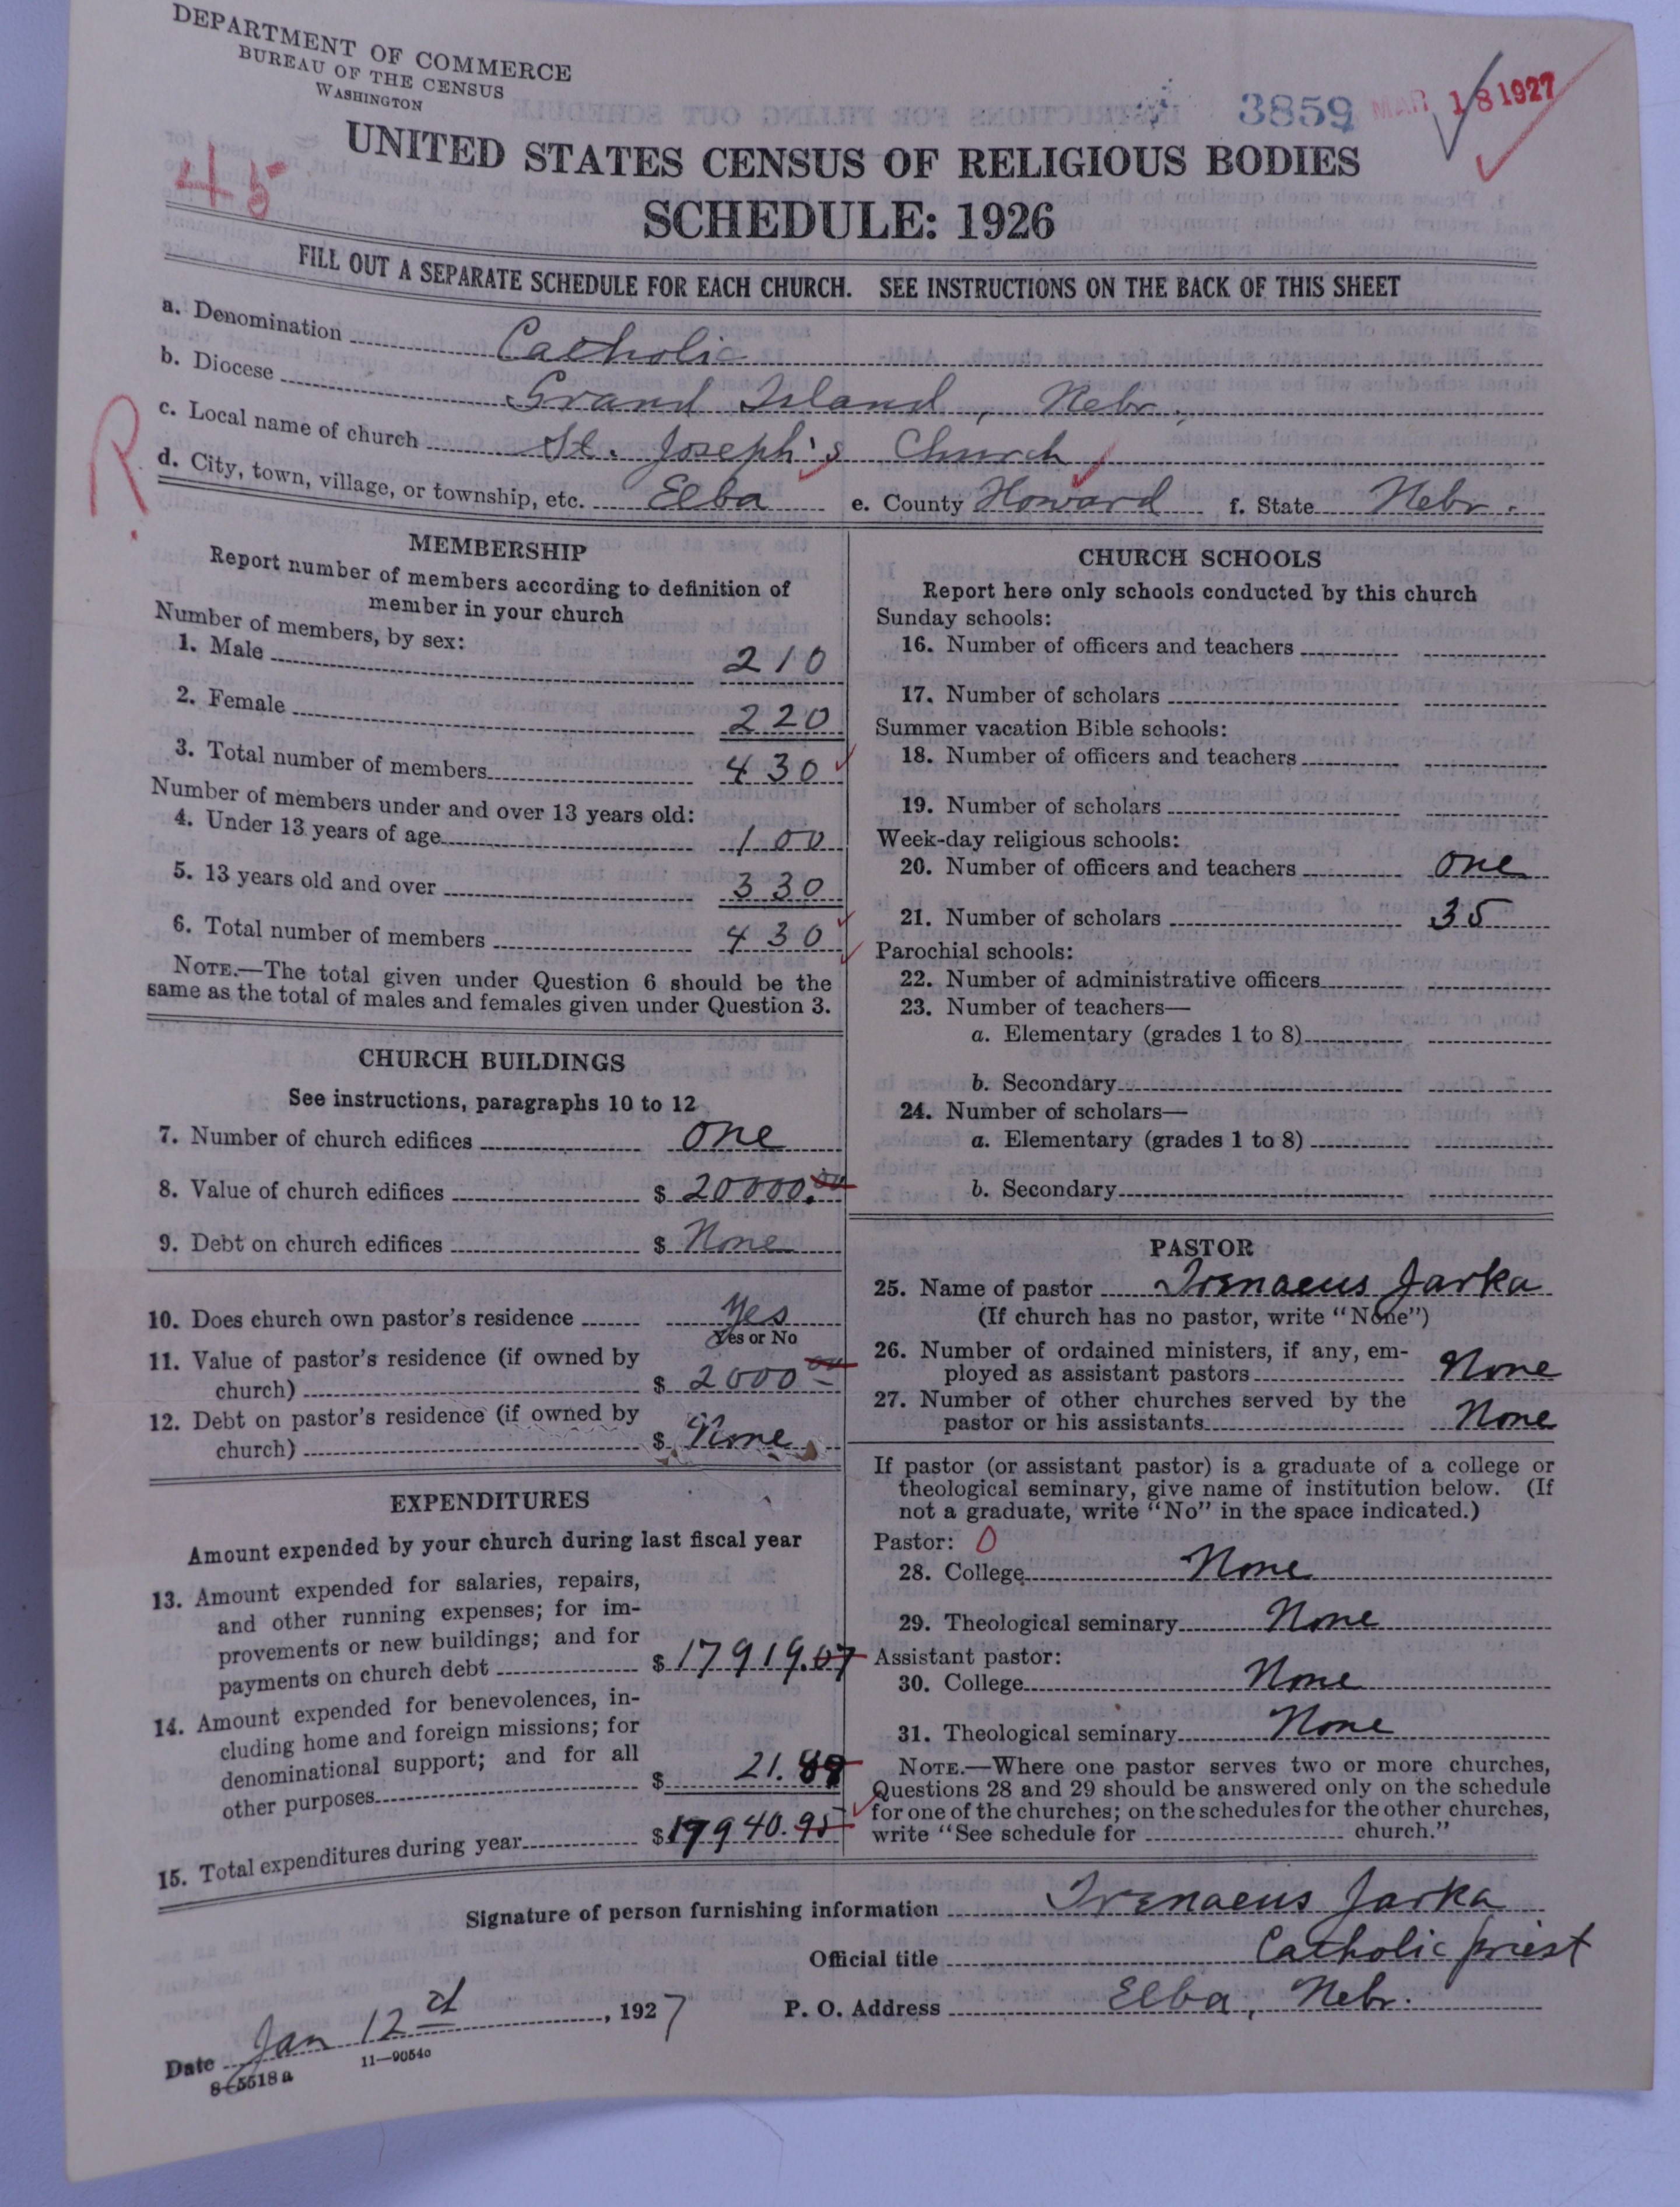 DEPARTMENT OF COMMERCE
BUREAU OF THE CENSUS
WASHINGTON
3859
MAR 18 1927
45
UNITED STATES CENSUS OF RELIGIOUS BODIES
SCHEDULE: 1926
FILL OUT A SEPARATE SCHEDULE FOR EACH CHURCH. SEE INSTRUCTIONS ON THE BACK OF THIS SHEET
a. Denomination Catholic
b. Diocese Grand Island, Nebr.
R.
c. Local name of church St. Joseph's Church
d. City, town, village, or township, etc. Elba e. County Howard f. State Nebr.
MEMBERSHIP
Report number of members according to definition of
member in your church
Number of members, by sex:
1. Male 210
2. Female 220
3. Total number of members 430
Number of members under and over 13 years old:
4. Under 13 years of age 100
5. 13 years old and over 330
6. Total number of members 430
NOTE.—The total given under Question 6 should be the
same as the total of males and females given under Question 3.
CHURCH BUILDINGS
See instructions, paragraphs 10 to 12
7. Number of church edifices one
8. Value of church edifices $ 20000.00
9. Debt on church edifices $ None
10. Does church own pastor's residence Yes
Yes or No
11. Value of pastor's residence (if owned by
church) $ 2000 00
12. Debt on pastor's residence (if owned by
church) $ None
EXPENDITURES
Amount expended by your church during last fiscal year
13. Amount expended for salaries, repairs,
and other running expenses; for im-
provements or new buildings; and for
payments on church debt $ 17919.07
14. Amount expended for benevolences, in-
cluding home and foreign missions; for
denominational support; and for all
other purposes $ 21.88
15. Total expenditures during year $ 17940.95
CHURCH SCHOOLS
Report here only schools conducted by this church
Sunday schools:
16. Number of officers and teachers
17. Number of scholars
Summer vacation Bible schools:
18. Number of officers and teachers
19. Number of scholars
Week-day religious schools:
20. Number of officers and teachers one
21. Number of scholars 35
Parochial schools:
22. Number of administrative officers
23. Number of teachers—
a. Elementary (grades 1 to 8)
b. Secondary
24. Number of scholars—
a. Elementary (grades 1 to 8)
b. Secondary
PASTOR
25. Name of pastor Irenaeus Jarka
(If church has no pastor, write "None")
26. Number of ordained ministers, if any, em-
ployed as assistant pastors None
27. Number of other churches served by the
pastor or his assistants None
If pastor (or assistant pastor) is a graduate of a college or
theological seminary, give name of institution below. (If
not a graduate, write "No" in the space indicated.)
Pastor: 0
28. College None
29. Theological seminary None
Assistant pastor:
30. College None
31. Theological seminary None
NOTE.—Where one pastor serves two or more churches,
Questions 28 and 29 should be answered only on the schedule
for one of the churches; on the schedules for the other churches,
write "See schedule for church."
Signature of person furnishing information Irenaeus Jarka
Official title Catholic priest
Date Jan 12 d, 1927 P. O. Address Elba, Nebr.
8-5518 a 11—9054c